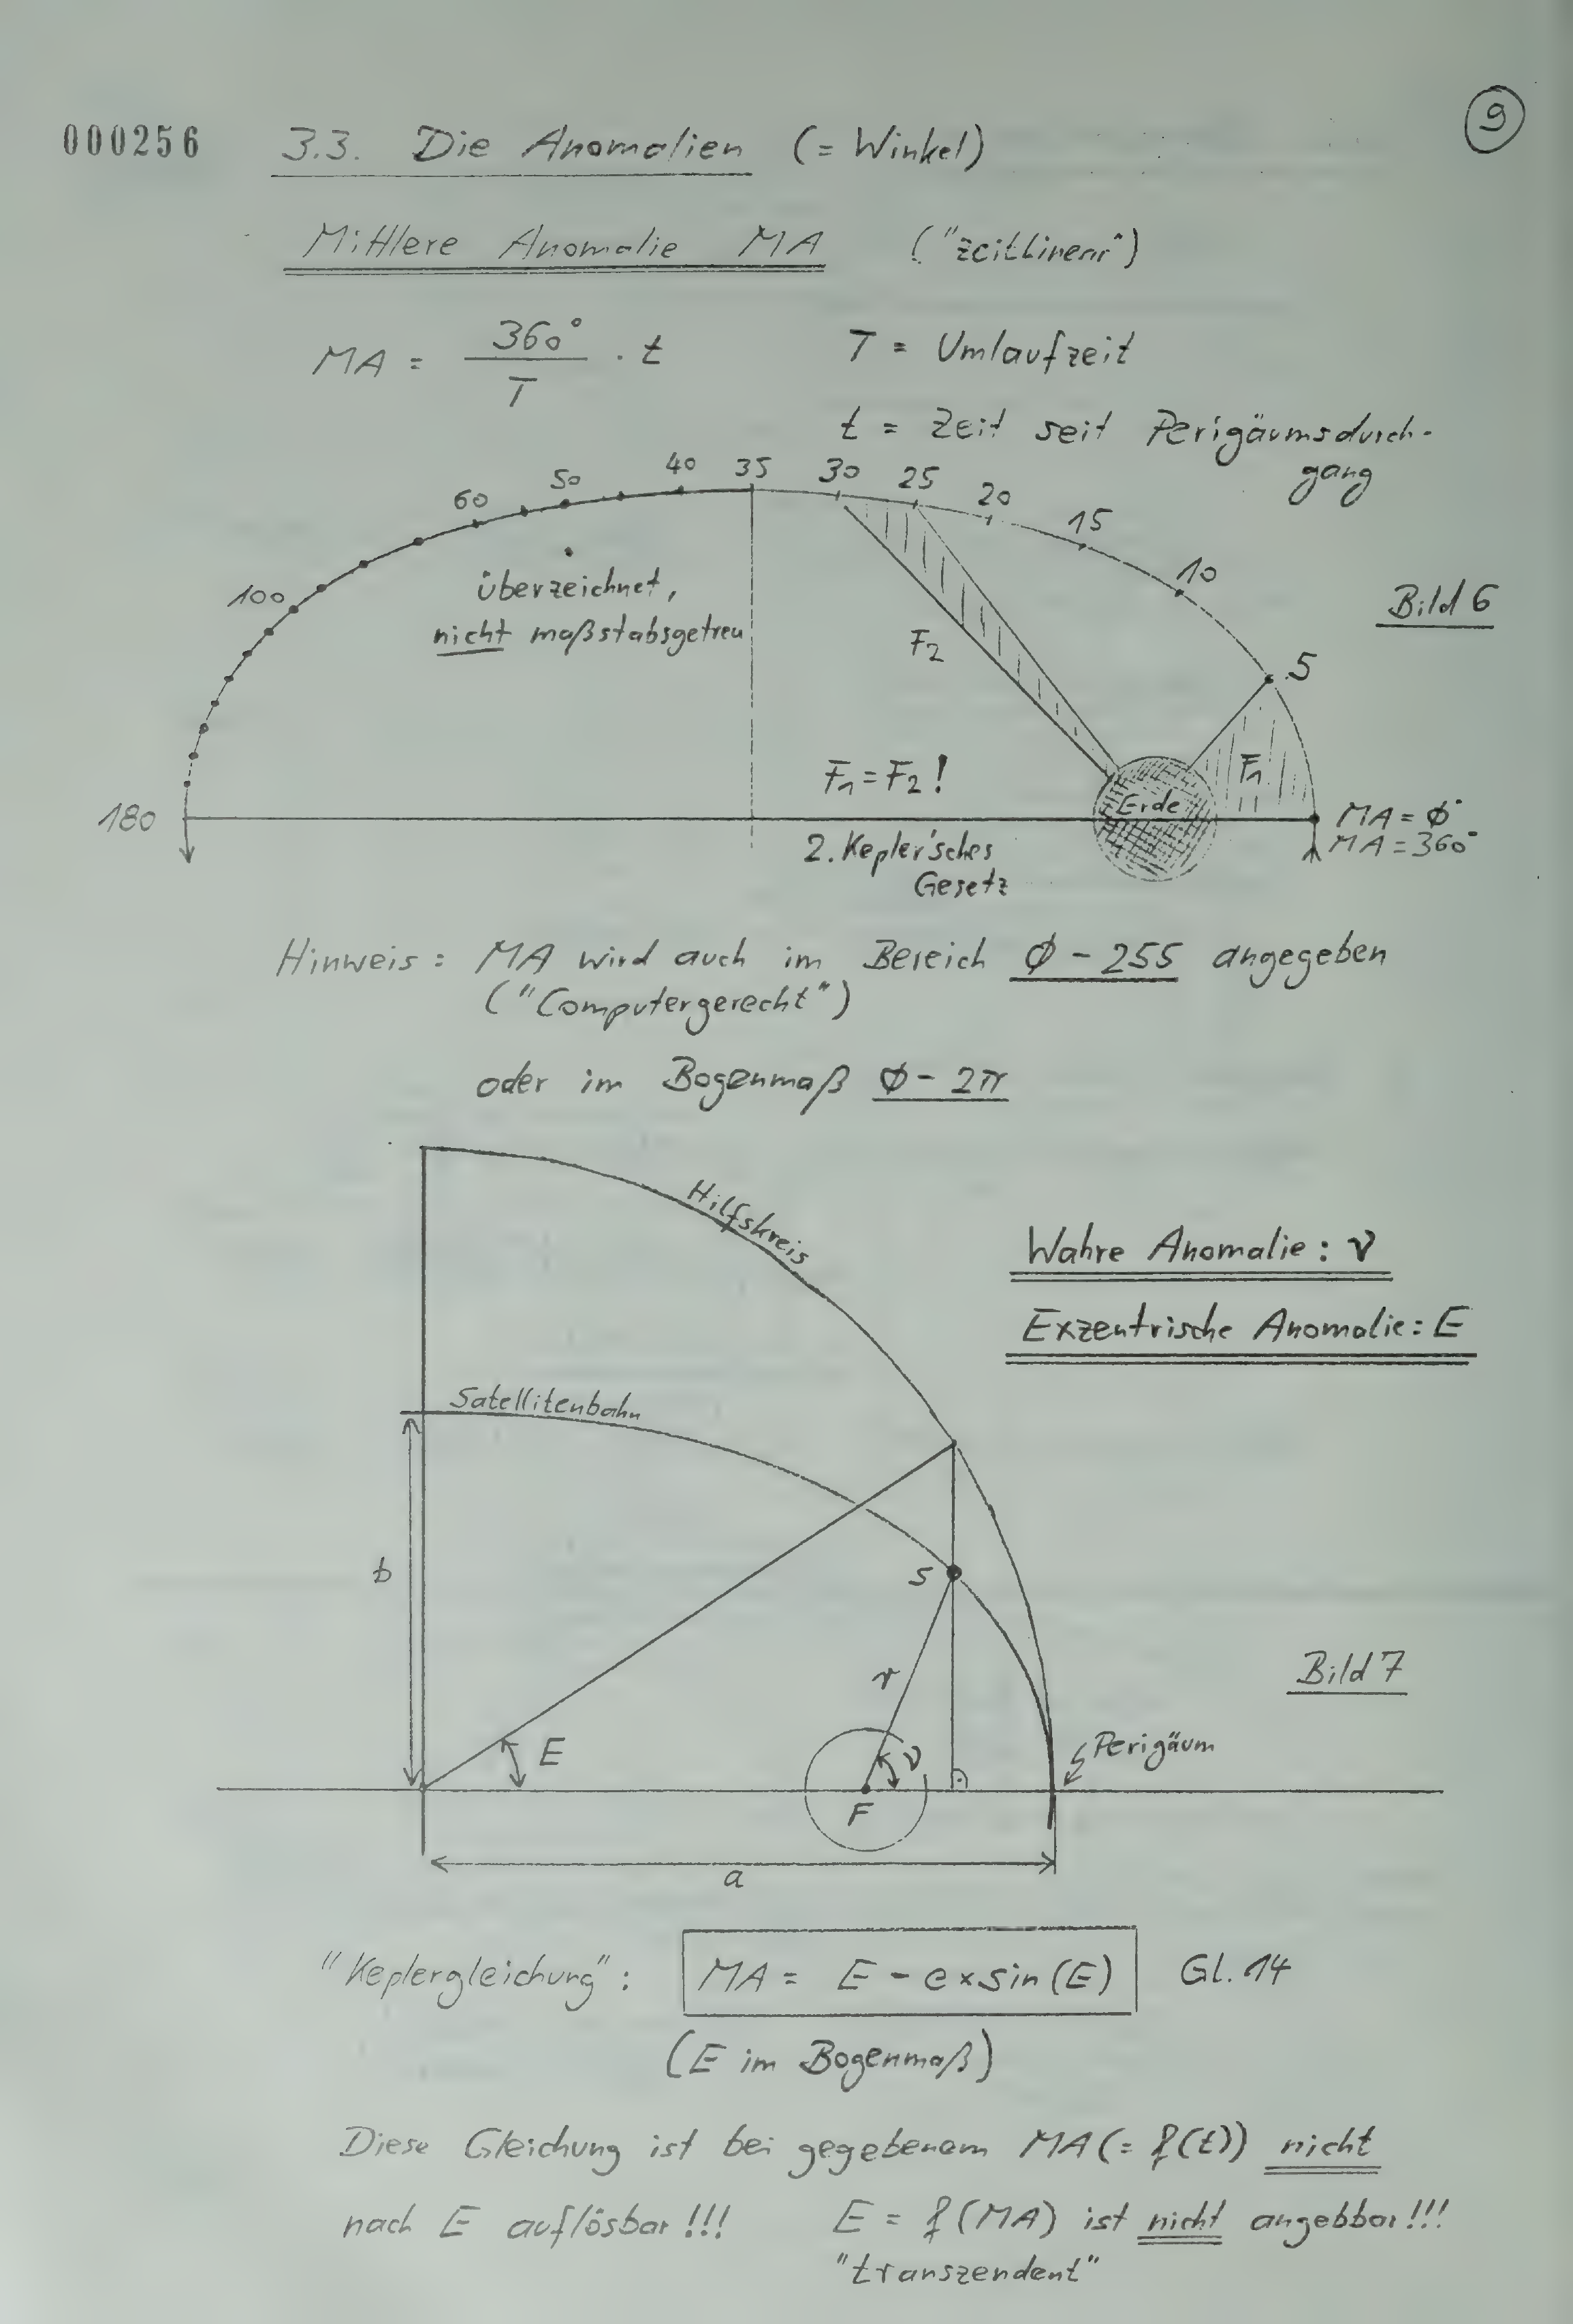 9
000256 3.3. Die Anomalien (= Winkel)
Mittlere Anomalie MA ("zeitlinear")
MA = 360° / T · t T = Umlaufzeit
t = Zeit seit Perigäumsdurch-
gang
60 50 40 35 30 25 20 15 10 5
100
überzeichnet,
nicht maßstabsgetreu
Bild 6
F2
F1 = F2!
F1
Erde
180
MA = Ø°
MA = 360°
2. Kepler'sches
Gesetz
Hinweis: MA wird auch im Bereich Ø - 255 angegeben
("Computergerecht")
oder im Bogenmaß Ø - 2π
Hilfskreis
Wahre Anomalie: ν
Exzentrische Anomalie: E
Satellitenbahn
b
S
r
Bild 7
E
ν
Perigäum
F
a
"Keplergleichung": MA = E - e × sin (E) Gl. 14
(E im Bogenmaß)
Diese Gleichung ist bei gegebenem MA (= f(t)) nicht
nach E auflösbar!!! E = f (MA) ist nicht angebbar!!!
"transzendent"